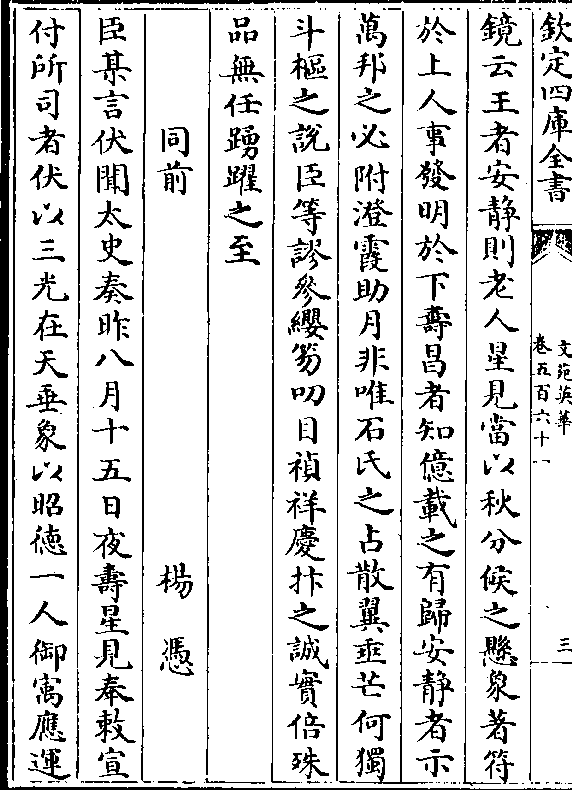 欽定四庫全書
文苑英華
卷五百六十一
三
鏡云王者安静則老人星見當以秋分候之懸象著符
於上人事發明於下壽昌者知億載之有歸安静者示
萬邦之必附澄霞助月非唯石氏之占散翼垂芒何獨
斗樞之說臣等謬參纓笏叨目禎祥慶抃之誠實倍殊
品無任踴躍之至
同前
楊憑
臣某言伏聞太史奏昨八月十五日夜壽星見奉敕宣
付所司者伏以三光在天垂象以昭德一人御寓應運